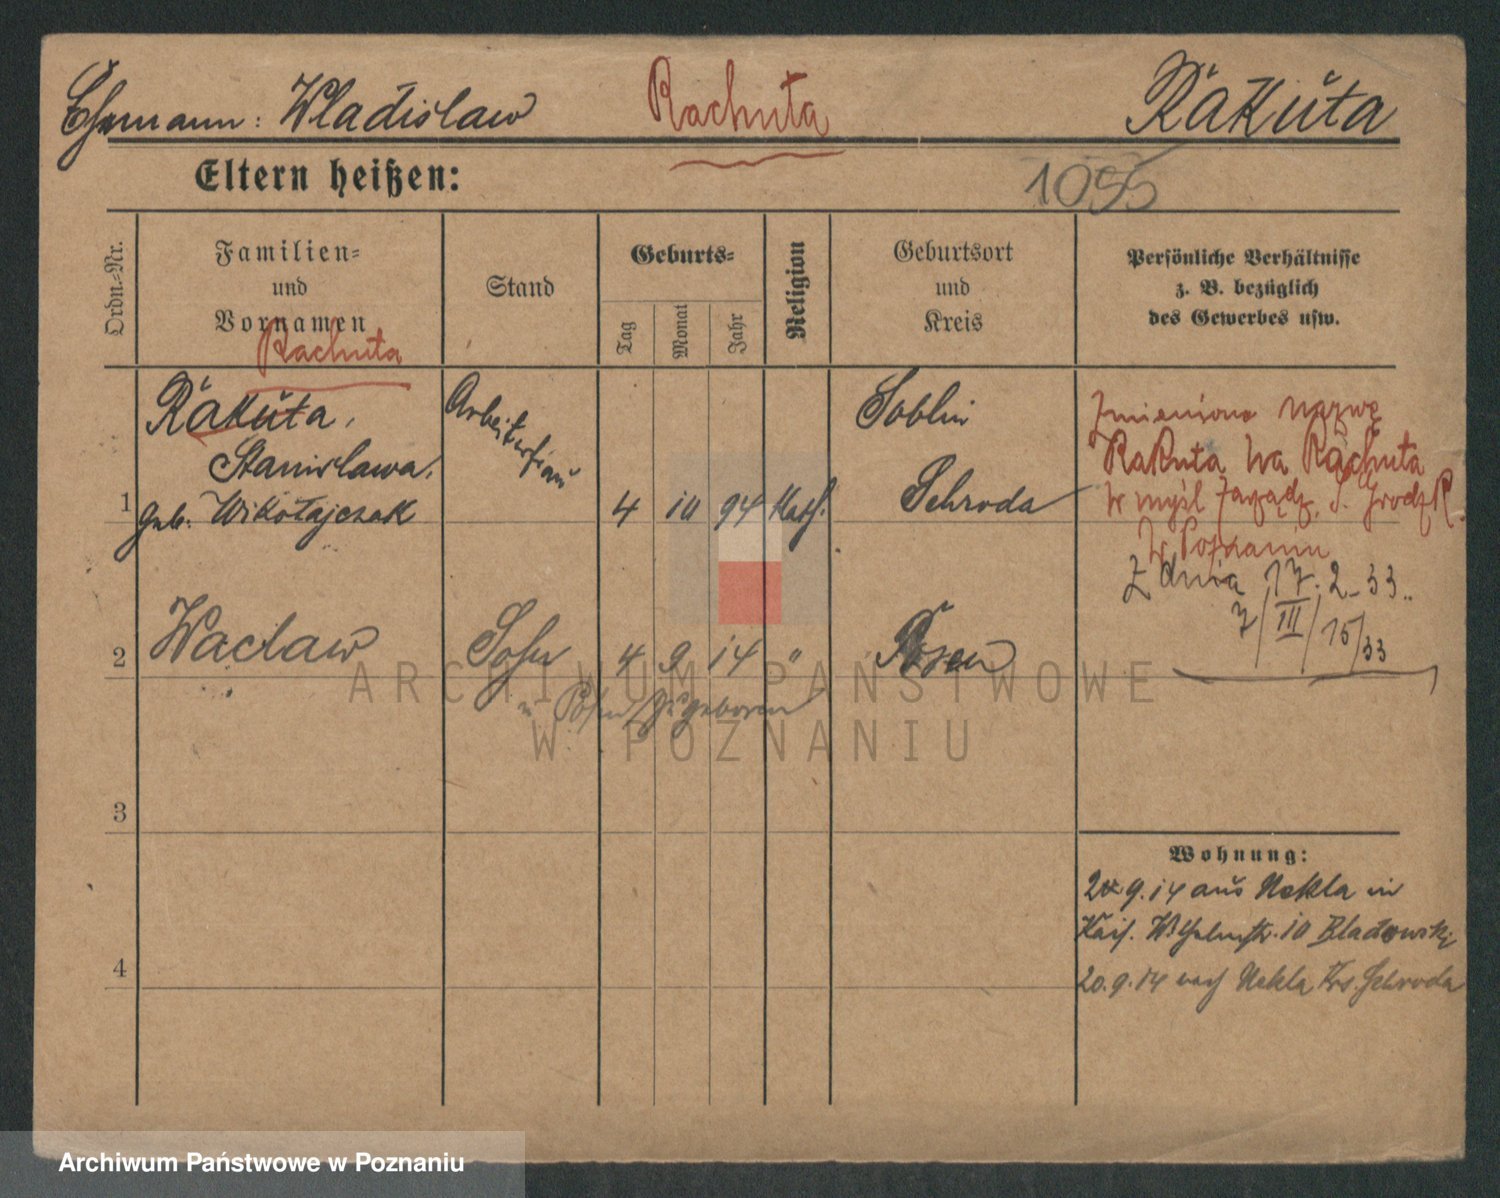 Ehemann: Wladislaw Rachuta Rakuta
Eltern heißen: 1055
Ordn.-Nr.
Familien-
und
Vornamen
Stand
Geburts-
Tag
Monat
Jahr
Religion
Geburtsort
und
Kreis
Persönliche Verhältnisse
z. B. bezüglich
des Gewerbes usw.
Rachuta
Rakuta,
Stanislawa,
1 geb. Mikołajczak Arbeiterfrau 4 10 94 Kath.
Schroda
Zmieniono nazwę
Rakuta na Rachuta
w myśl Zarządz. S. Grodzk.
w Poznaniu
Z dnia 17.2-33..
7/III/15/33
2 Wacław Sohn 4 9 14 " Posen
in Posen geboren
3
4
Wohnung:
9.14 aus Nekla in
Kais. Wilhelmstr. 10
20.9.14 nach Nekla Krs. Schroda
ARCHIWUM PAŃSTWOWE
W POZNANIU
Archiwum Państwowe w Poznaniu